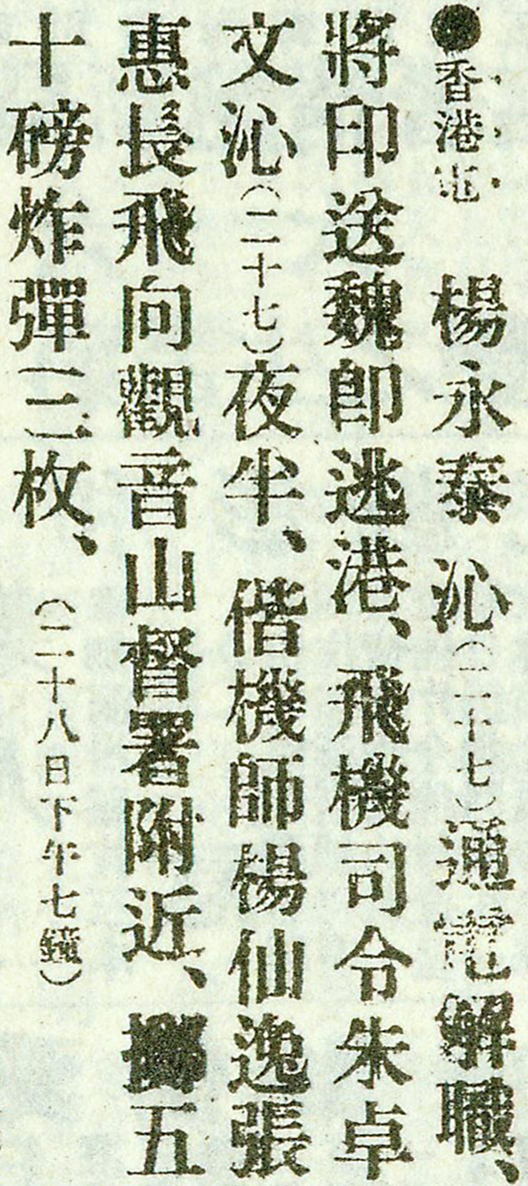 ●香港電　楊永泰沁（二十七）通電解職、
將印送魏卽逃港、飛機司令朱卓
文沁（二十七）夜半、偕機師楊仙逸張
惠長飛向觀音山督署附近、擲五
十磅炸彈三枚、（二十八日下午七鐘）